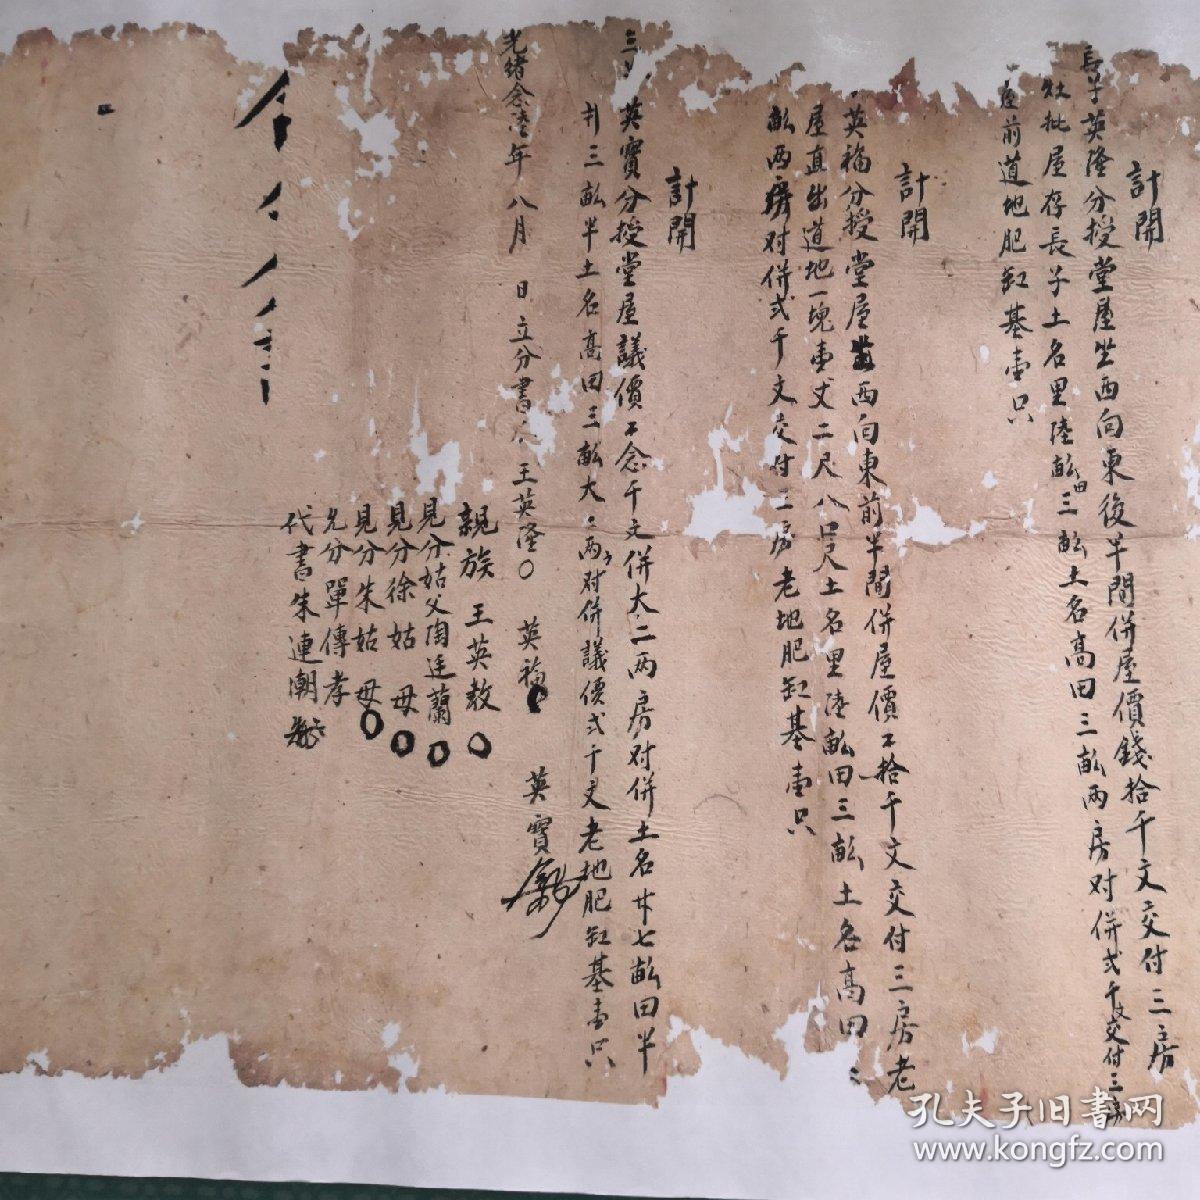 計開
長子英隆分授堂屋坐西向東後半間併屋價錢拾千文交付三房
灶批屋存長子土名里陸畝田三畝土名高田三畝両房对併弍千文交付三房
前道地肥缸基壷只
計開
英福分授堂屋西向東前半間併屋價拾千文交付三房老
屋直出道地一塊壷丈二尺八口尺土名里陸畝田三畝土名高田三
畝両房对併弍千文交付三房老地肥缸基壷只
計開
英寳分授堂屋議價念千文併大二両房对併土名廿七畝田半
三畝半土名高田三畝大両对併議價弍千文老地肥缸基壷只
光緒念陸年八月 日立分書人王英隆〇 英福 英寳
親族王英敖〇
見分姑父陶廷蘭〇
見分徐姑母〇
見分朱姑母〇
見分單傳孝
代書朱連潮
孔夫子旧书网
www.kongfz.com